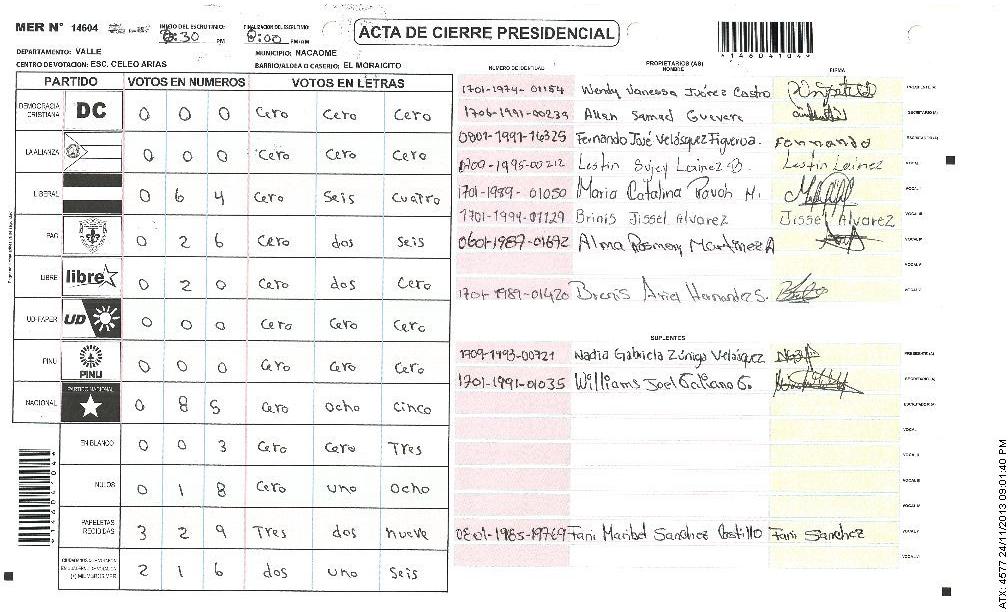 MER N° 14604
INICIO DEL ESCRUTINIO: 6:30 PM
FINALIZACION DEL ESCRUTINIO: 8:00 PM/AM
ACTA DE CIERRE PRESIDENCIAL
*14604104*
DEPARTAMENTO: VALLE
MUNICIPIO: NACAOME
CENTRO DE VOTACION: ESC. CELEO ARIAS
BARRIO/ALDEA O CASERIO: EL MORAICITO
PARTIDO VOTOS EN NUMEROS VOTOS EN LETRAS
DEMOCRACIA CRISTIANA DC 0 0 0 Cero Cero Cero
LA ALIANZA 0 0 0 Cero Cero Cero
LIBERAL 0 6 4 Cero Seis Cuatro
PAC 0 2 6 Cero dos Seis
LIBRE libre 0 2 0 Cero dos Cero
UD-FAPER UD 0 0 0 Cero Cero Cero
PINU PINU 0 0 0 Cero Cero Cero
NACIONAL PARTIDO NACIONAL 0 8 5 Cero Ocho Cinco
EN BLANCO 0 0 3 Cero Cero Tres
NULOS 0 1 8 Cero uno Ocho
PAPELETAS RECIBIDAS 3 2 9 Tres dos nueve
2 1 6 dos uno Seis
NUMERO DE IDENTIDAD PROPIETARIOS (AS) NOMBRE FIRMA
1701-1974-01154 Wendy Vanessa Juárez Castro PRESIDENTE (A)
1706-1991-00239 Allan Samad Guevara SECRETARIO (A)
0801-1991-16325 Fernando José Velásquez Figueroa. Fernando ESCRUTADOR (A)
1709-1995-00212 Lestin Sujey Lainez Lestin Lainez VOCAL I
1701-1989-01050 Maria Catalina Pavoh M. VOCAL II
1701-1994-01129 Brinis Jissel Alvarez Jissel Alvarez VOCAL III
0601-1987-01692 Alma Rosmery Martinez A VOCAL IV
VOCAL V
1701-1989-01420 Brenis Ariel Hernandez S.
SUPLENTES
1709-1993-00721 Nadia Gabriela Zúniga Velásquez PRESIDENTE (A)
1701-1991-01035 Williams Joel Galiano G. SECRETARIO (A)
ESCRUTADOR (A)
VOCAL I
VOCAL II
VOCAL III
VOCAL IV
0801-1985-19769 Fani Maribel Sanchez Postillo Fani Sanchez
ATX: 4577 24/11/2013 09:01:40 PM